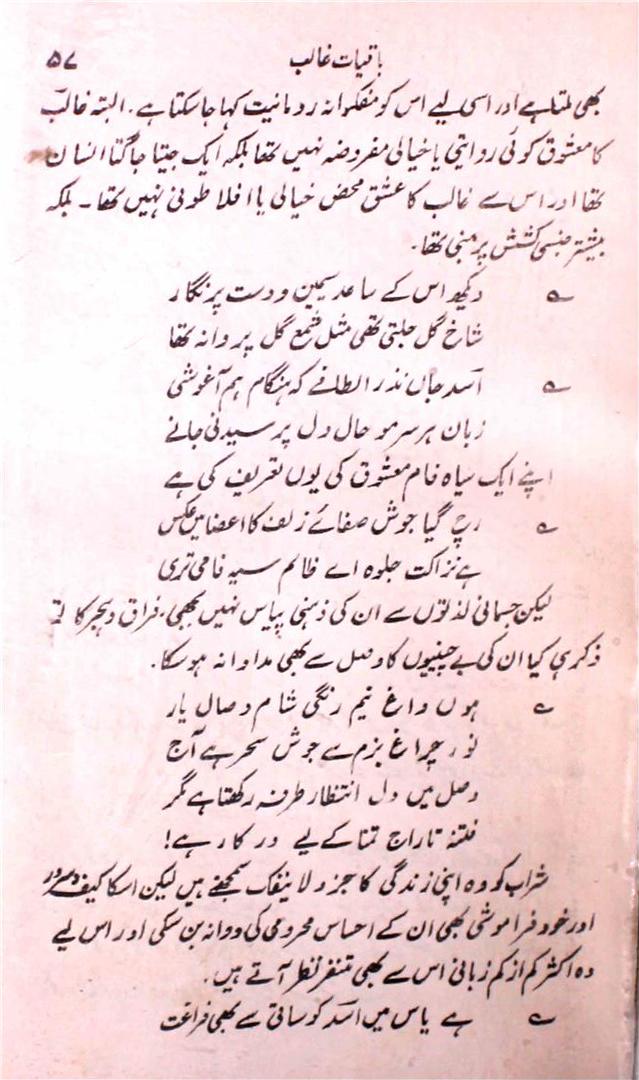 باقیات غالب ۵۷
بھی ملتا ہے اور اسی لیے اس کو مفکرانہ رومانیت کہا جا سکتا ہے۔ البتہ غالب
کا معشوق کوئی روایتی یا خیالی مفروضہ نہیں تھا بلکہ ایک جیتا جاگتا انسان
تھا اور اس سے غالب کا عشق محض خیالی یا افلاطونی نہیں تھا۔ بلکہ
بیشتر جنسی کشش پر مبنی تھا۔
؎ دیکھ اس کے ساعد سیمین و دست پر نگار
شاخ گل جلتی تھی مثل شمع گل پروانہ تھا
؎ اسد جاں نذر الطافے کہ ہنگام ہم آغوشی
زبان ہر سر مو حال دل پرسیدنی جانے
اپنے ایک سیاہ فام معشوق کی یوں تعریف کی ہے
؎ رچ گیا جوش صفائے زلف کا اعضا میں عکس
ہے نزاکت جلوہ اے ظالم سیہ فامی تری
لیکن جسمانی لذتوں سے ان کی ذہنی پیاس نہیں بجھی، فراق و ہجر کا تو
ذکر ہی کیا ان کی بے چینیوں کا وصل سے بھی مداوا نہ ہو سکا۔
؎ ہوں داغ نیم رنگی شام وصال یار
نور چراغ بزم سے جوش سحر ہے آج
وصل میں دل انتظار طرفہ رکھتا ہے مگر
فتنہ تاراج تمنا کے لیے درکار ہے!
شراب کو وہ اپنی زندگی کا جزو لاینفک سمجھتے ہیں لیکن اسکا کیف و سرور
اور خود فراموشی بھی ان کے احساس محرومی کی دوا نہ بن سکی اور اس لیے
وہ اکثر کم از کم زبانی اس سے بھی متنفر نظر آتے ہیں۔
؎ ہے یاس میں اسد کو ساقی سے بھی فراغت